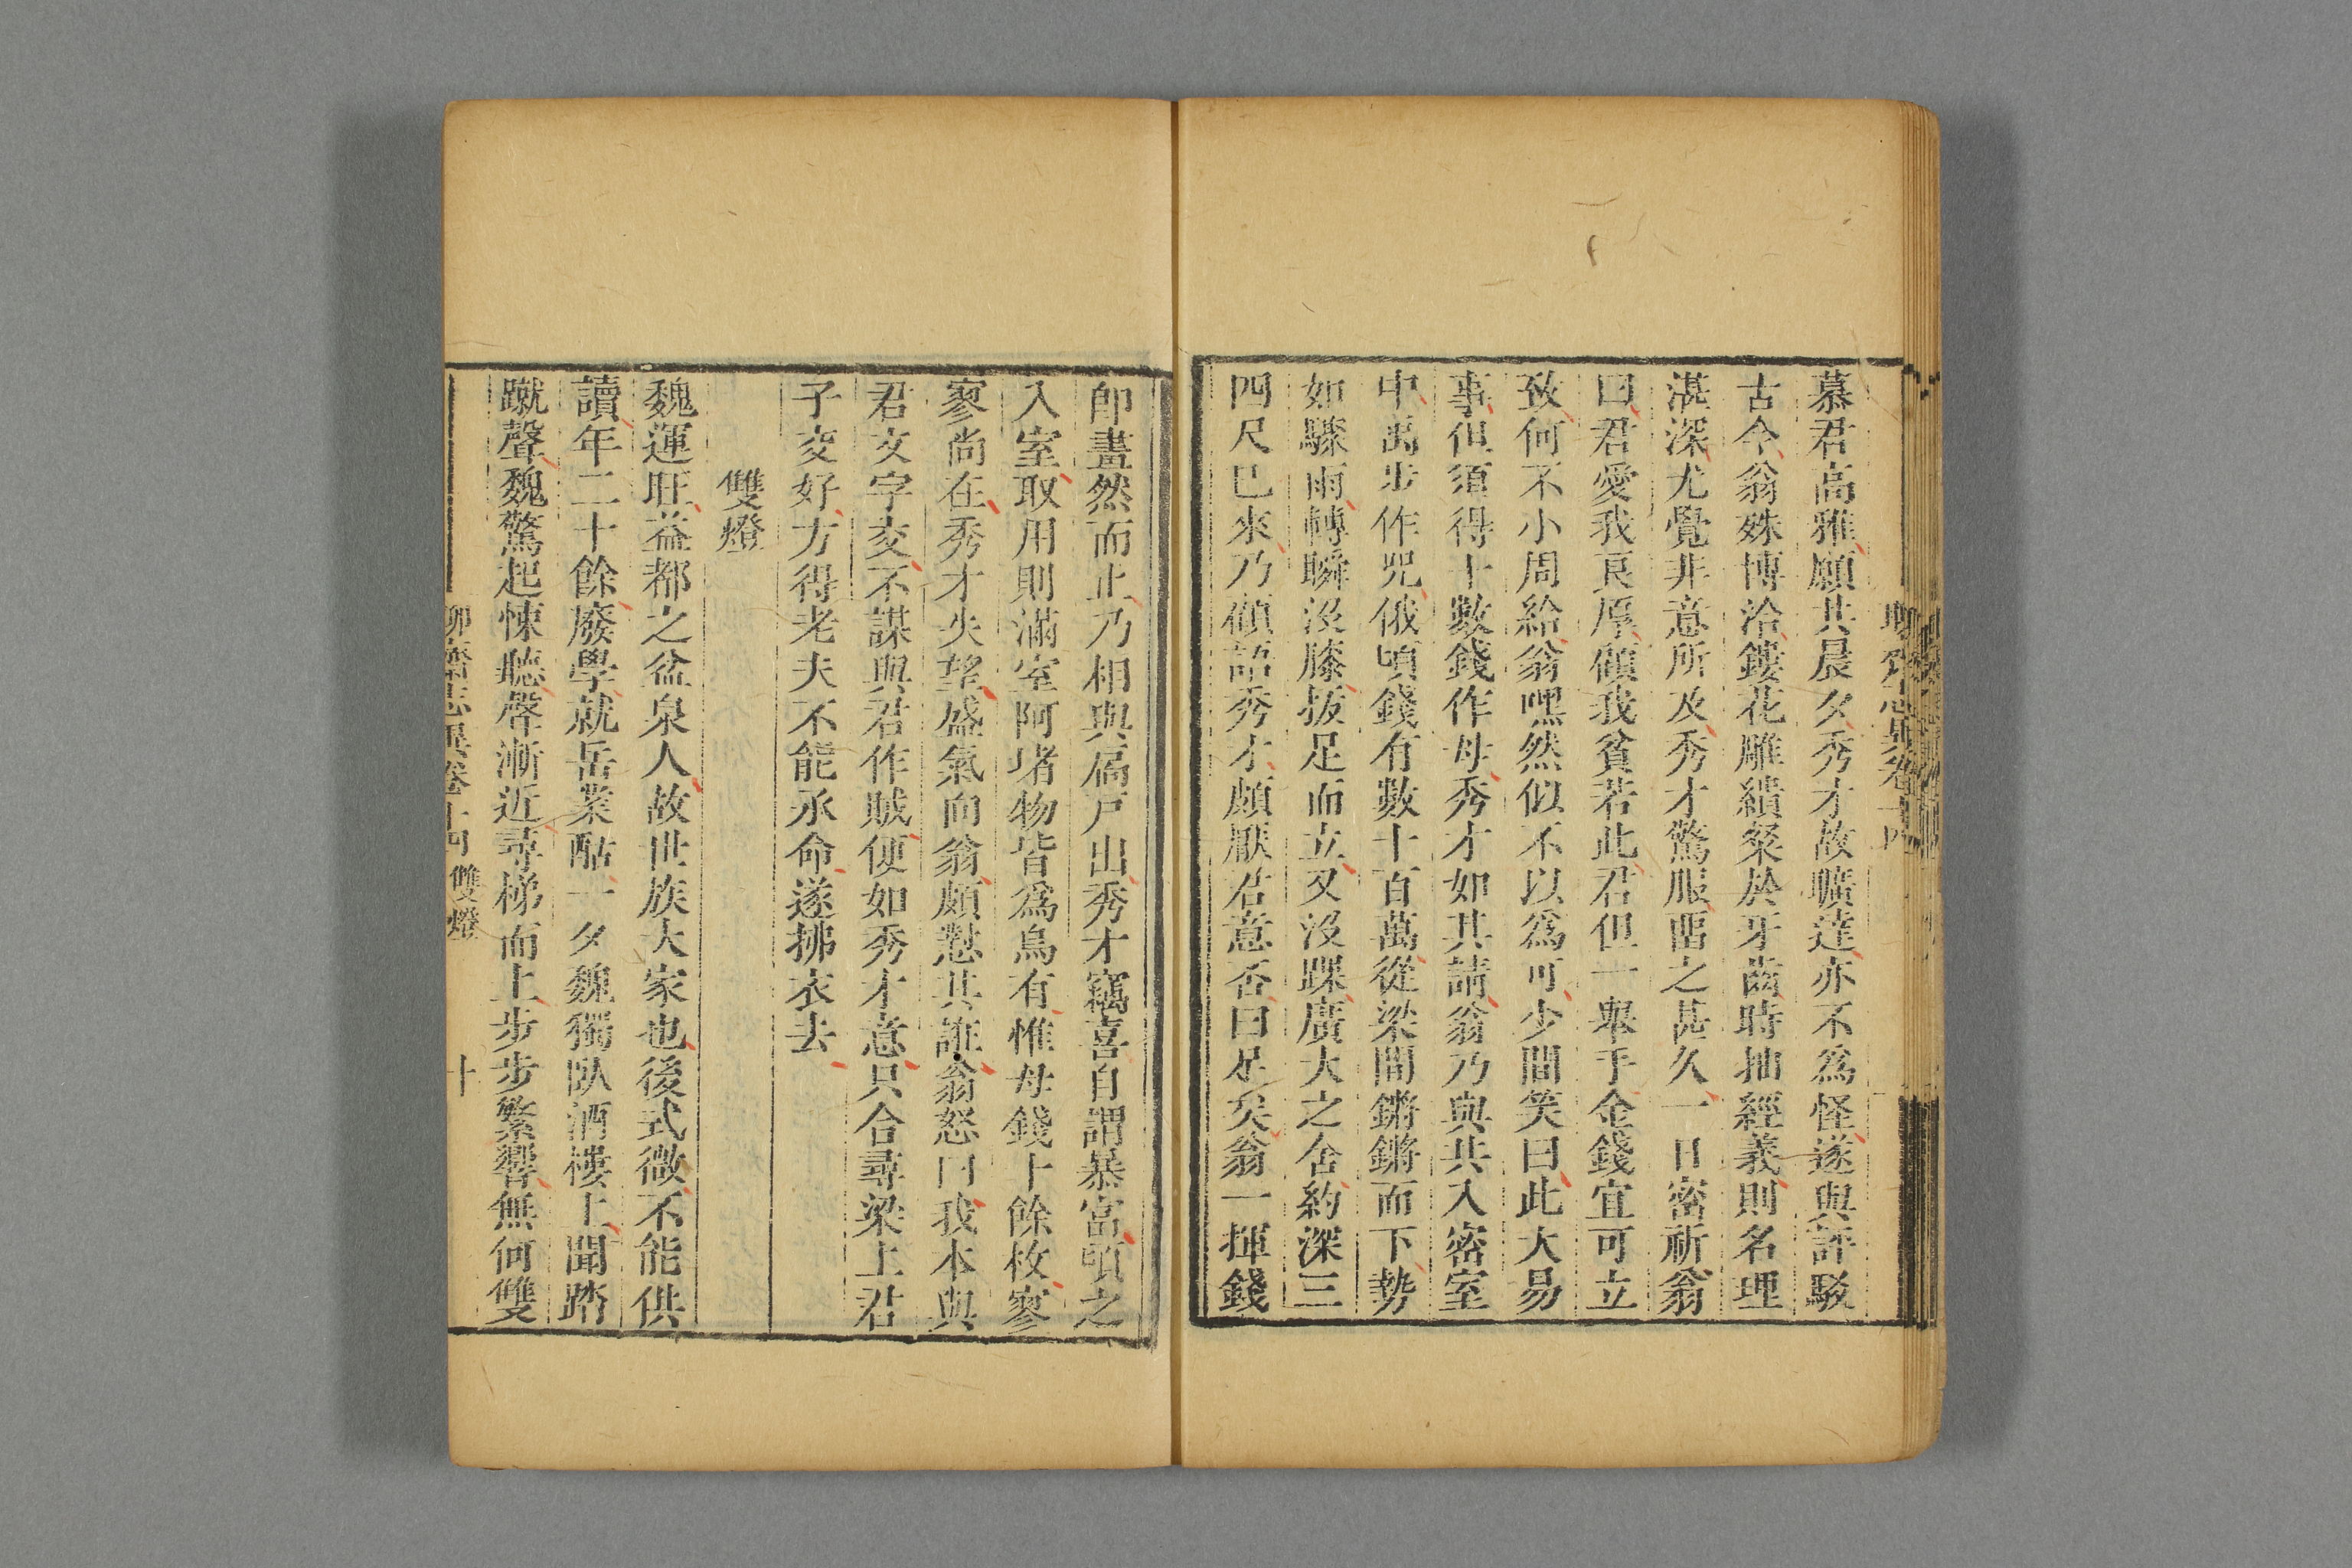 慕君高雅願共晨夕秀才故曠達亦不為怪遂與評駁
古今翁殊博洽鏤花雕繢粲於牙齒時抽經義則名理
湛深尤覺非意所及秀才驚服畱之甚久一日密祈翁
曰君愛我良厚顧我貧若此君但一舉手金錢宜可立
致何不小周給翁嘿然似不以為可少間笑曰此大易
事但須得十數錢作母秀才如其請翁乃與共入密室
中禹步作咒俄頃錢有數十百萬從梁間鏘鏘而下勢
如驟雨轉瞬沒膝拔足而立又沒踝廣大之舍約深三
四尺已來乃顧語秀才頗厭君意否曰足矣翁一揮錢
即畫然而止乃相與扃戸出秀才竊喜自謂暴富頃之
入室取用則滿室阿堵物皆為烏有惟母錢十餘枚寥
寥尚在秀才失望盛氣向翁頗懟其誑翁怒曰我本與
君文字交不謀與君作賊便如秀才意只合尋梁上君
子交好方得老夫不能承命遂拂衣去
雙燈
魏運旺益都之盆泉人故世族大家也後式微不能供
讀年二十餘廢學就岳業酤一夕魏獨臥酒樓上聞踏
蹴聲魏驚起悚聽聲漸近尋梯而上步步繁響無何雙
聊齋志異卷十四 雙燈 十